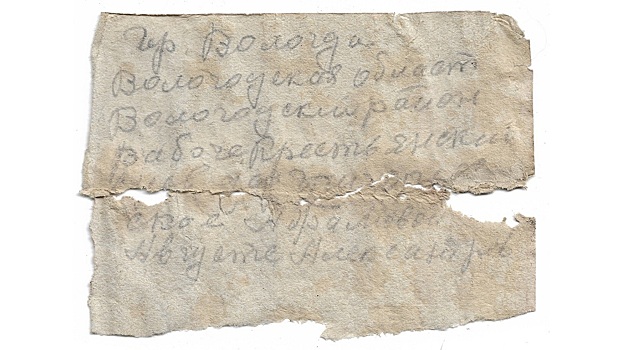 Гр. Вологда
Вологодская област
Вологодский район
Рабоче Крестьянский
Августе Александр